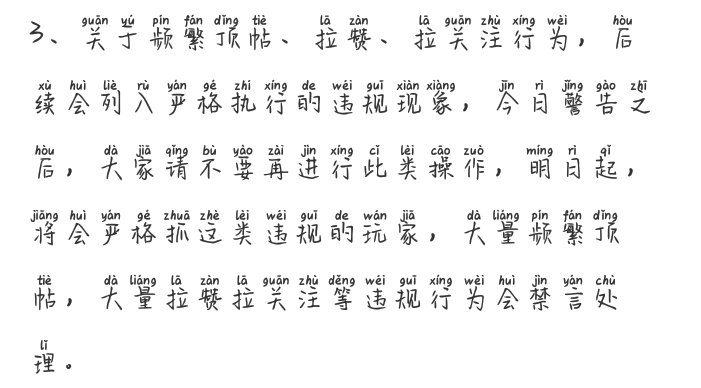 guān yú pín fán dǐng tiè lā zàn lā guān zhù xíng wèi hòu
3、关于频繁顶帖、拉赞、拉关注行为，后
xù huì liè rù yán gé zhí xíng de wéi guī xiàn xiàng jīn rì jǐng gào zhī
续会列入严格执行的违规现象，今日警告之
hòu dà jiā qǐng bù yào zài jìn xíng cǐ lèi cāo zuò míng rì qǐ
后，大家请不要再进行此类操作，明日起，
jiāng huì yán gé zhuā zhè lèi wéi guī de wán jiā dà liáng pín fán dǐng
将会严格抓这类违规的玩家，大量频繁顶
tiè dà liáng lā zàn lā guān zhù děng wéi guī xíng wèi huì jìn yán chù
帖，大量拉赞拉关注等违规行为会禁言处
lǐ
理。